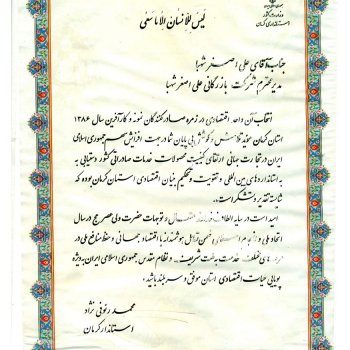 لیس للانسان الا ما سعی
جمهوری اسلامی ایران
وزارت کشور
استانداری کرمان
جناب آقای علی اصغر شهبا
مدیر محترم شرکت بازرگانی علی اصغر شهبا
انتخاب آن واحد اقتصادی در زمره صادرکنندگان نمونه و کارآفرین سال ۱۳۸۶
استان کرمان موید تلاش و کوشش بی پایان شما در جهت افزایش سهم جمهوری اسلامی
ایران در تجارت جهانی ارتقای کیفیت محصولات خدمات صادراتی کشور دستیابی به
استانداردهای بین المللی و تقویت و تحکیم بنیان اقتصادی استان کرمان بوده که
شایسته تقدیر و تشکر است.
امید است در سایه الطاف خداوند متعال و توجهات حضرت ولی عصر عج در سال
اتحاد ملی و انسجام اسلامی ضمن تعامل هوشمندانه با اقتصاد جهانی و حفظ منافع ملی در
عرصه های مختلف خدمت به ملت شریف و نظام مقدس جمهوری اسلامی ایران به ویژه
پویایی حیات اقتصادی استان موفق و سربلند باشید.
محمد رئوفی نژاد
استاندار کرمان